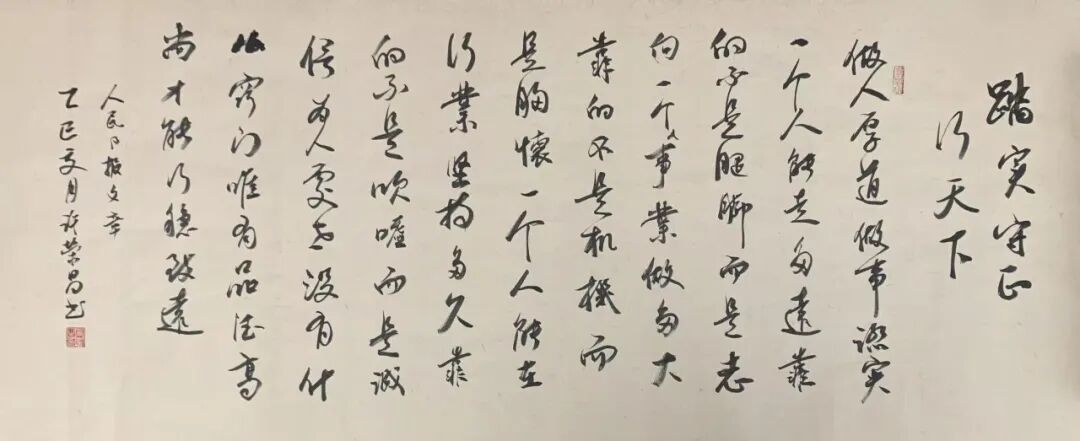 踏实守正
行天下
做人厚道做事实
一个人能走多遠靠
的不是腿脚而是志
向一个人事業做多大
靠的不是机機而
是胸懷一个人能在
行業坚持多久靠
的不是吹嘘而是诚
信为人處世没有什
么窍门唯有品德高
尚才能行稳致遠
人民日报文章
乙巳夏月荣昌书